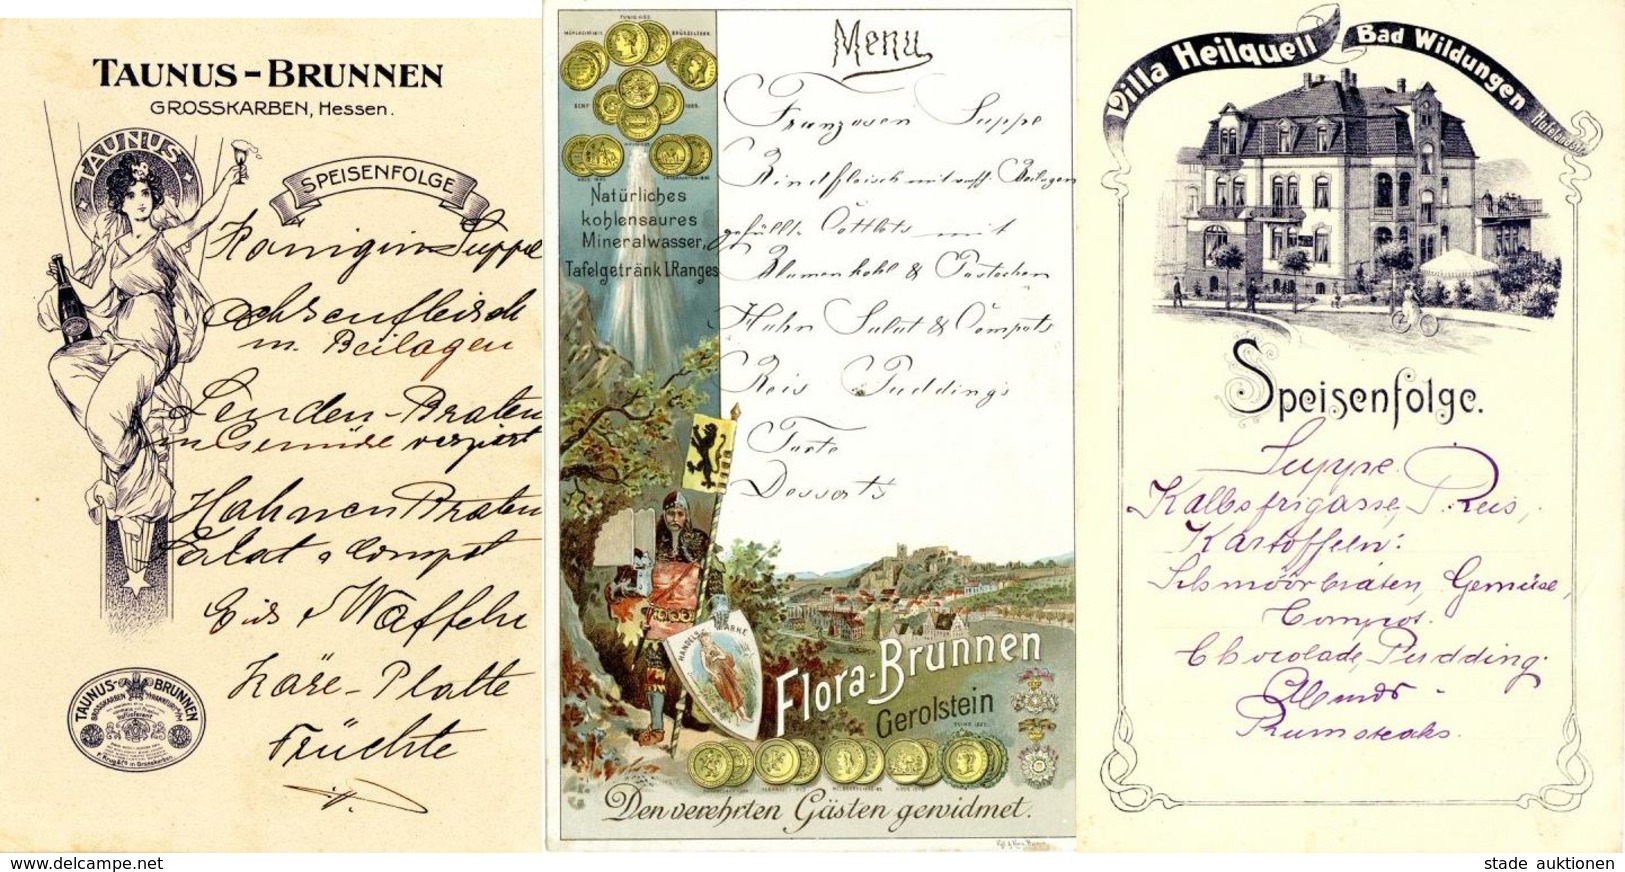 TAUNUS-BRUNNEN
GROSSKARBEN, Hessen.
TAUNUS
SPEISENFOLGE
Königin Suppe
Ochsenfleisch
m. Beilagen
Lenden-Braten
m Gemüse verziert
Hahnen Braten
Salat & Compot
Eis & Waffeln
Käse-Platte
Früchte
TAUNUS-BRUNNEN
GROSSKARBEN
Menu
TUNIS
BRÜSSEL
GENF
1889.
Natürliches
kohlensaures
Mineralwasser,
Tafelgetränk I. Ranges
Franzosen Suppe
Rindfleisch mit versch. Beilagen
gefüllte Cottlets mit
Blumenkohl & Pastechen
Hahn Salat & Compots
Reis Pudding's
Torte
Dessert's
HANDELS MARKE
Flora-Brunnen
Gerolstein
Den verehrten Gästen gewidmet.
Villa Heilquell Bad Wildungen
Hufelandstr.
Speisenfolge.
Suppe.
Kalbsfrigasse, Reis,
Kartoffeln:
Schmöörbraten, Gemüse,
Compot.
Chocolade-Pudding.
Abends -
Rumsteaks.
www.delcampe.net
stade auktionen